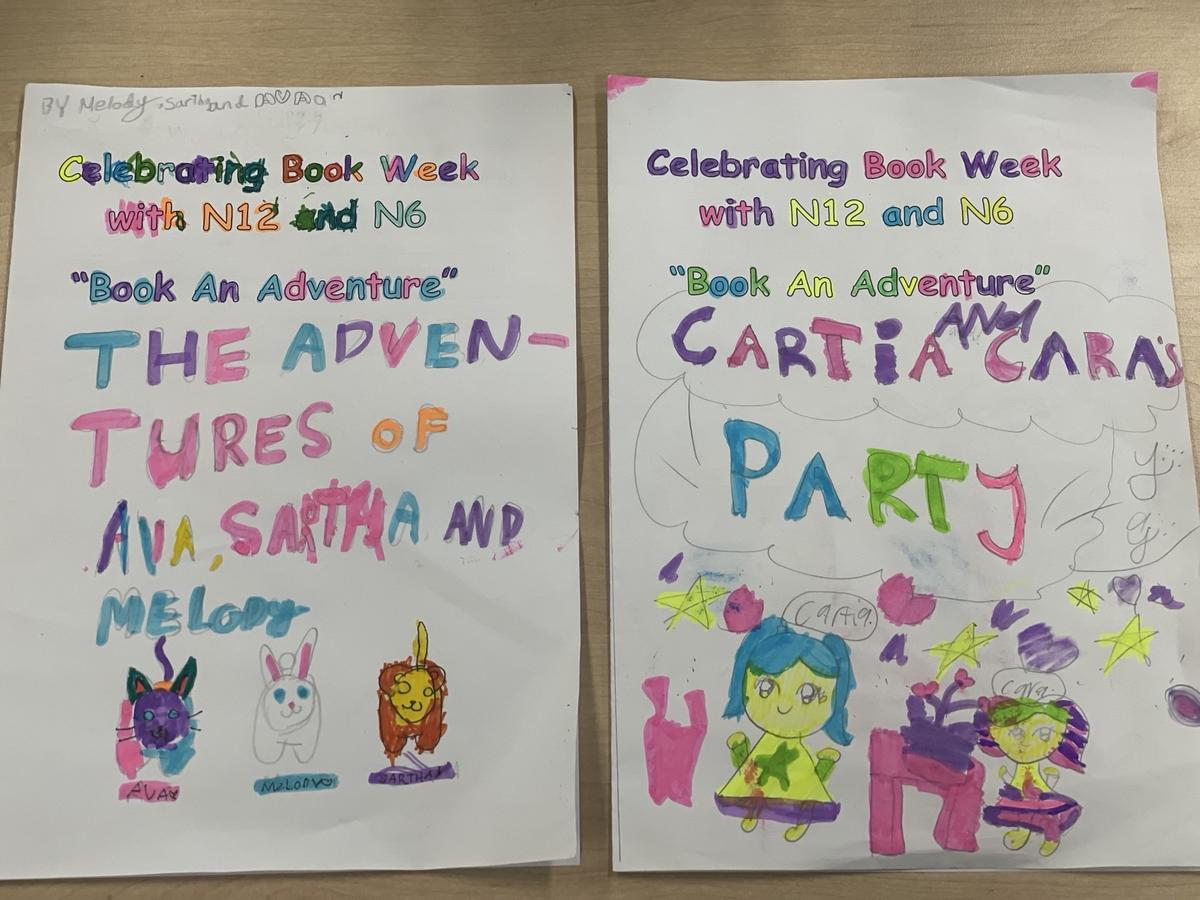 BY Melody, Sartha and AVA
Celebrating Book Week
with N12 and N6
"Book An Adventure"
THE ADVEN-
TURES OF
AVA, SARTHA AND
MELODY
AVA
MELODY
SARTHA
Celebrating Book Week
with N12 and N6
"Book An Adventure"
CARTIA AND CARA'S
PARTY
Cartia
Cara